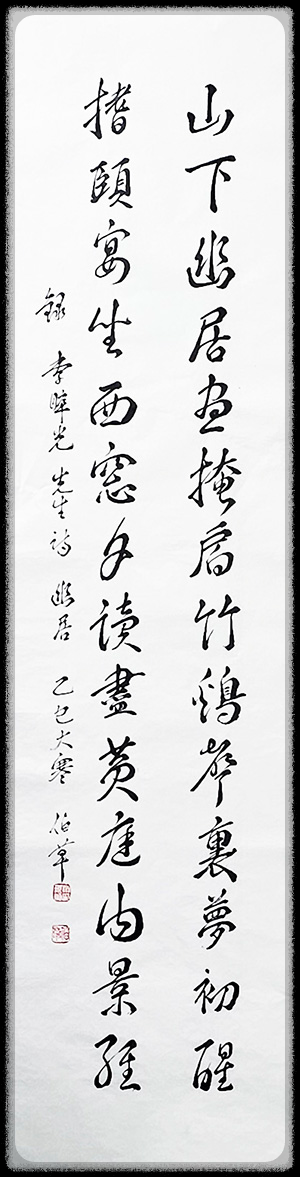 山下幽居晝掩扃竹鷄聲裏夢初醒
搘頤宴坐西窓下讀盡黃庭內景經
錄 李睟光先生詩 幽居 乙巳大寒 伯華